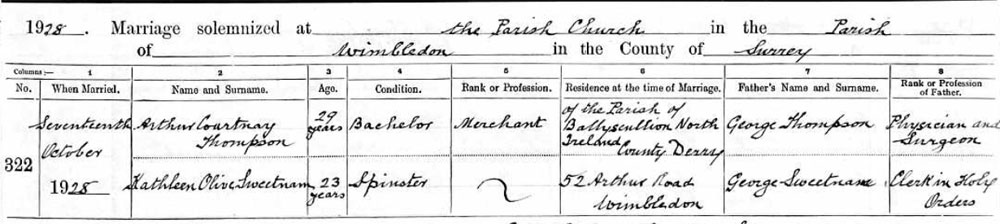 1928. Marriage solemnized at the Parish Church in the Parish
of Wimbledon in the County of Surrey
Columns :— 1 2 3 4 5 6 7 8
No. When Married. Name and Surname. Age. Condition. Rank or Profession. Residence at the time of Marriage. Father's Name and Surname. Rank or Profession of Father.
322
Seventeenth
October
1928
Arthur Courtnay
Thompson
29
years
Bachelor
Merchant
of the Parish of
Ballyscullion North
Ireland County Derry
George Thompson
Physician and
Surgeon
Kathleen Olive Sweetnam
23
years
Spinster
52 Arthur Road
Wimbledon
George Sweetnam
Clerk in Holy
Orders